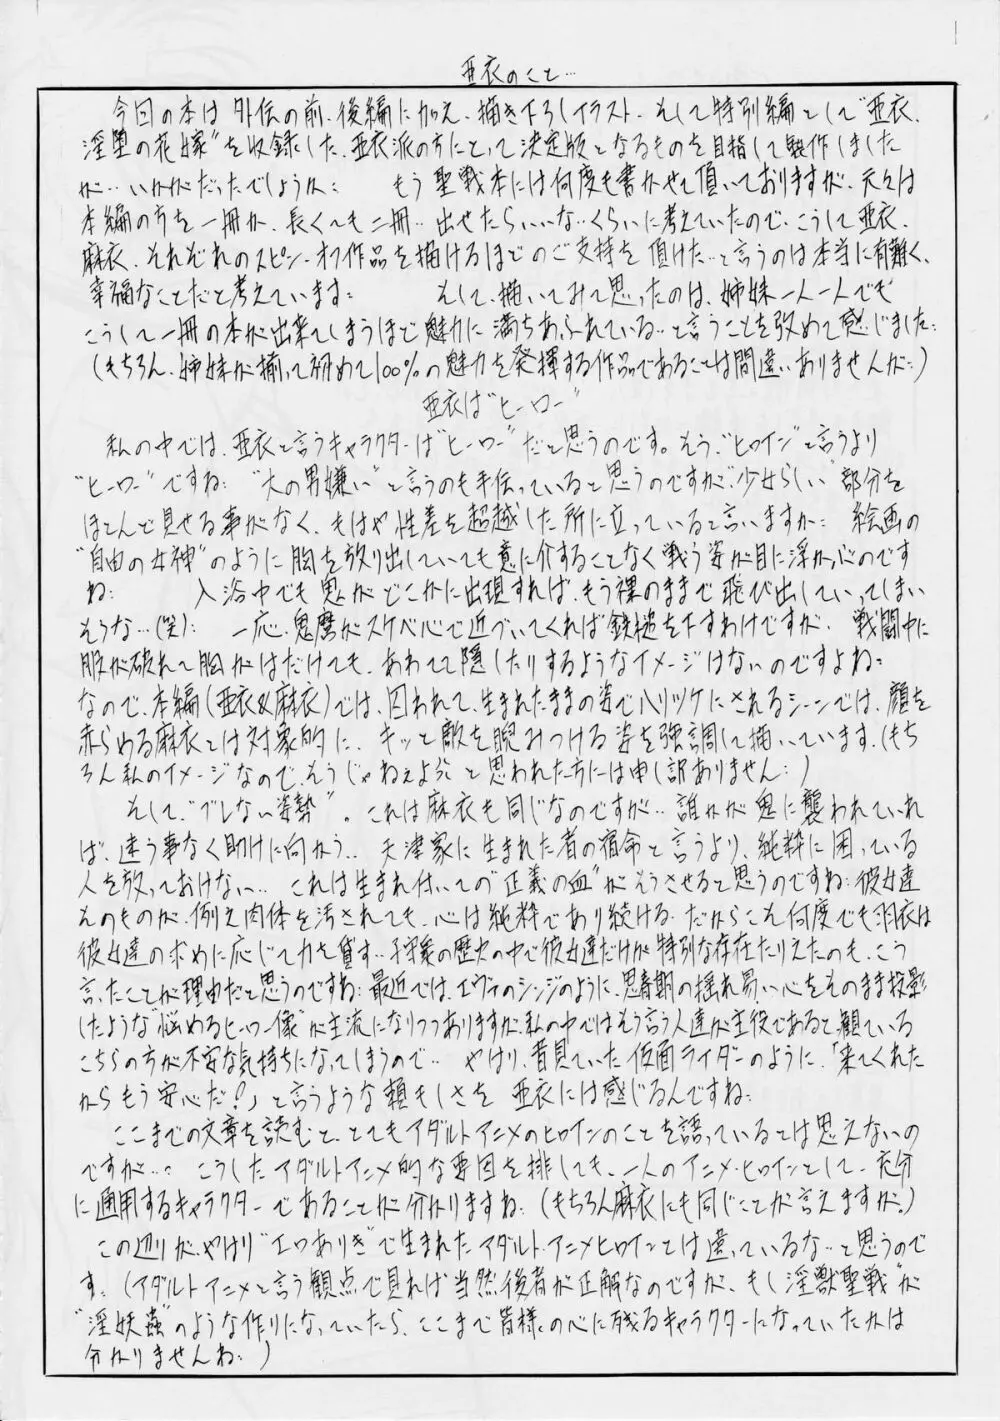 亜衣のこと…
今回の本は外伝の前、後編に加え、描き下ろしイラスト、そして特別編として"亜衣、
淫堕の花嫁"を収録した、亜衣派の方にとって決定版となるものを目指して製作しました
が…いかがだったでしょうか… もう聖戦本には何度も書かせて頂いておりますが、元々は
本編の方を一冊か、長くても二冊…出せたらいいな…くらいに考えていたので、こうして亜衣、
麻衣、それぞれのスピン・オフ作品を描けるほどのご支持を頂けた…と言うのは本当に有難く、
幸福なことだと考えています… そして、描いてみて思ったのは、姉妹一人一人でも
こうして一冊の本が出来てしまうほど魅力に満ちあふれている…と言うことを改めて感じました…
(もちろん、姉妹が揃って初めて100%の魅力を発揮する作品であることは間違いありませんが…)
亜衣は"ヒーロー"
私の中では、亜衣と言うキャラクターは"ヒーロー"だと思うのです。もう、"ヒロイン"と言うより
"ヒーロー"ですね… "大の男嫌い"と言うのも手伝っていると思うのですが、"少女らしい"部分を
ほとんど見せる事がなく、もはや性差を超越した所に立っていると言いますか… 絵画の
"自由の女神"のように胸を放り出していても意に介することなく戦う姿が目に浮かぶのです
ね… 入浴中でも鬼がどこかに出現すれば、もう裸のままで飛び出していってしまい
そうな…(笑)… 一応、鬼麿がスケベ心で近づいてくれば鉄槌を下すわけですが、戦闘中に
服が破れて胸がはだけても、あわてて隠したりするようなイメージはないのですよね…
なので、本編(亜衣&麻衣)では、囚われて、生まれたままの姿でハリツケにされるシーンでは、顔を
赤らめる麻衣とは対象的に、キッと敵を睨みつける姿を強調して描いています。(もち
ろん私のイメージなので、そうじゃねぇよ と思われた方には申し訳ありません…)
そして、"ブレない姿勢"。これは麻衣も同じなのですが…誰かが鬼に襲われていれ
ば、迷う事なく助けに向かう… 天津家に生まれた者の宿命と言うより、純粋に困っている
人を放っておけない… これは生まれ付いての"正義の血"がそうさせると思うのですね…彼女達
そのものが、例え肉体を汚されても、心は純粋であり続ける…だからこそ何度でも羽衣は
彼女達の求めに応じて力を貸す… の歴史の中で彼女達だけが特別な存在たりえたのも、こう
言ったことが理由だと思うのですね…最近では、エヴァのシンジのように、思春期の揺れ易い心をそのまま投影
したような"悩めるヒーロー像"が主流になりつつありますが、私の中ではそう言う人達が主役であると、観ている
こちらの方が不安な気持ちになってしまうので… やはり、昔見ていた仮面ライダーのように、「来てくれた
からもう安心だ!」と言うような頼もしさを亜衣には感じるんですね…
ここまでの文章を読むと、とてもアダルトアニメのヒロインのことを語っているとは思えないの
ですが…。 こうしたアダルトアニメ的な要因を排しても、一人のアニメ・ヒロインとして、充分
に通用するキャラクターであることが分かりますね…(もちろん麻衣にも同じことが言えますが。)
この辺りが、やはり"エロありき"で生まれたアダルト・アニメヒロインとは違っているな…と思うので
す…(アダルトアニメと言う観点で見れば当然後者が正解なのですが、もし"淫獣聖戦"が
"淫妖蟲"のような作りになっていたら、ここまで皆様の心に残るキャラクターになっていたかは
分かりませんね…)